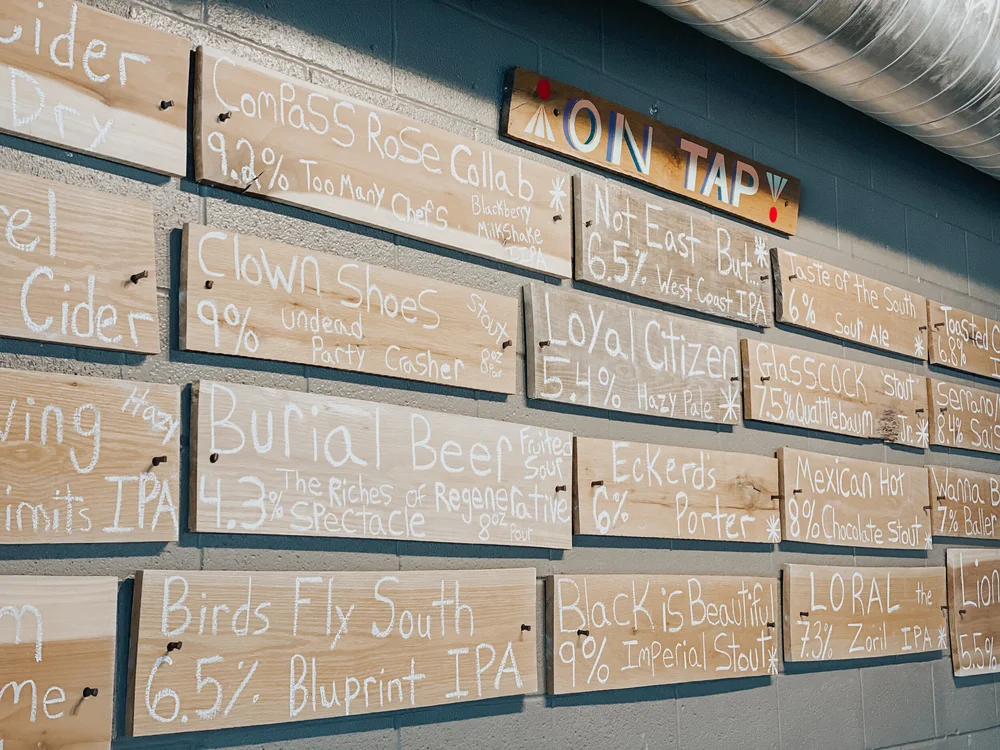 ON TAP
ider
Dry
el
Cider
ving Hazy
imits IPA
m
me
Compass Rose Collab
9.2% Too Many Chefs Blackberry
Milkshake
IPA
Clown Shoes
9% undead Stout
Party Crasher 8oz
Pour
Burial Beer Fruited
Sour
4.3% The Riches of Regenerative
Spectacle 8oz Pour
Birds Fly South
6.5% Bluprint IPA
Not East But...
6.5% West Coast IPA
Loyal Citizen
5.4% Hazy Pale
Eckerd's
6% Porter
Black is Beautiful
9% Imperial Stout
Taste of the South
6% Sour Ale
Glasscock Stout
7.5% Quattlebaum Jr.
Mexican Hot
8% Chocolate Stout
LORAL the
7.3% Zoril IPA
Toasted C
6.8%
Serrano
8.4% Sai
Wanna B
7% Balle
Lion
5.5%